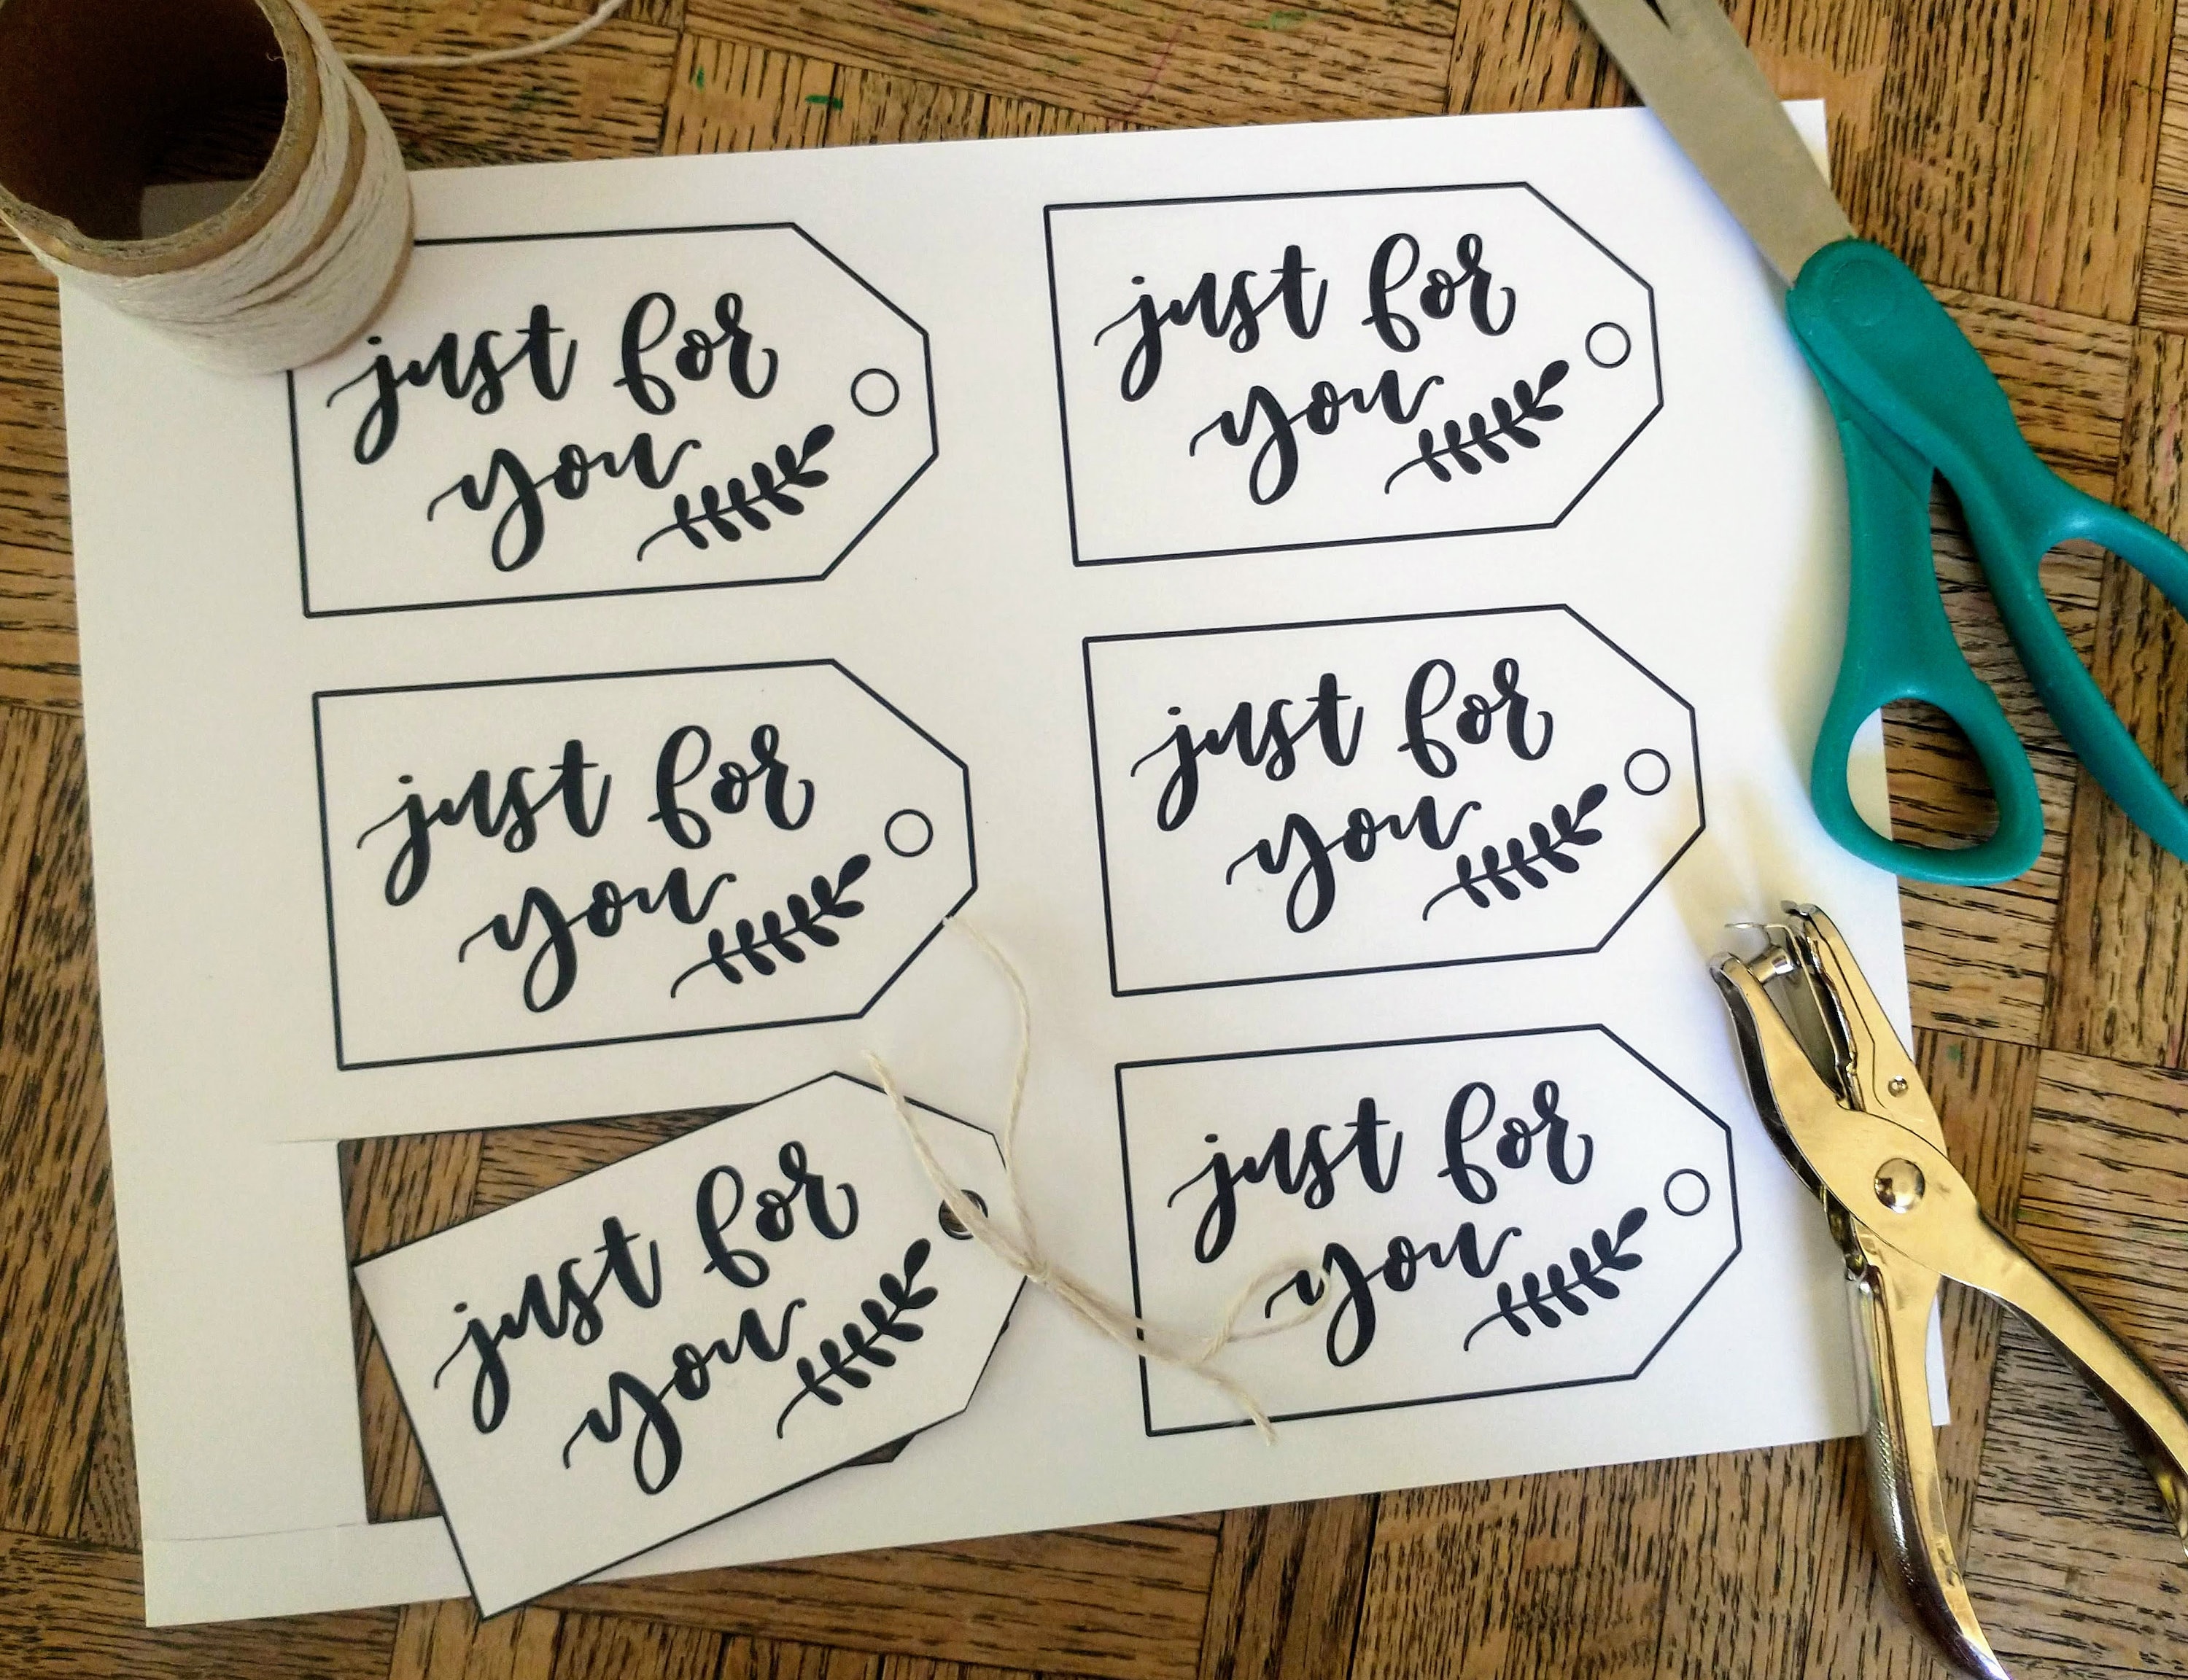 just for
you
just for
you
just for
you
just for
you
just for
you
just for
you